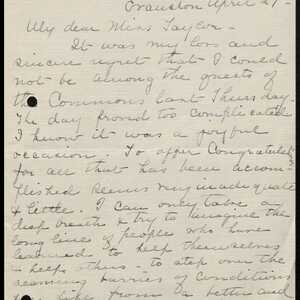 Cranston April 27-
My dear Miss Taylor -
It was my loss and
sincere regret that I could
not be among the guests of
the Commons last Thursday-
The day proved too complicated
I know it was a joyful
occasion. To offer Congratulations
for all that has been accom-
plished seems very inadequate
& little. I can only take a
deep breath & try to imagine the
long lines of people who have
learned to keep themselves
& help others - to step over the
seeming barriers of conditions
from a better and